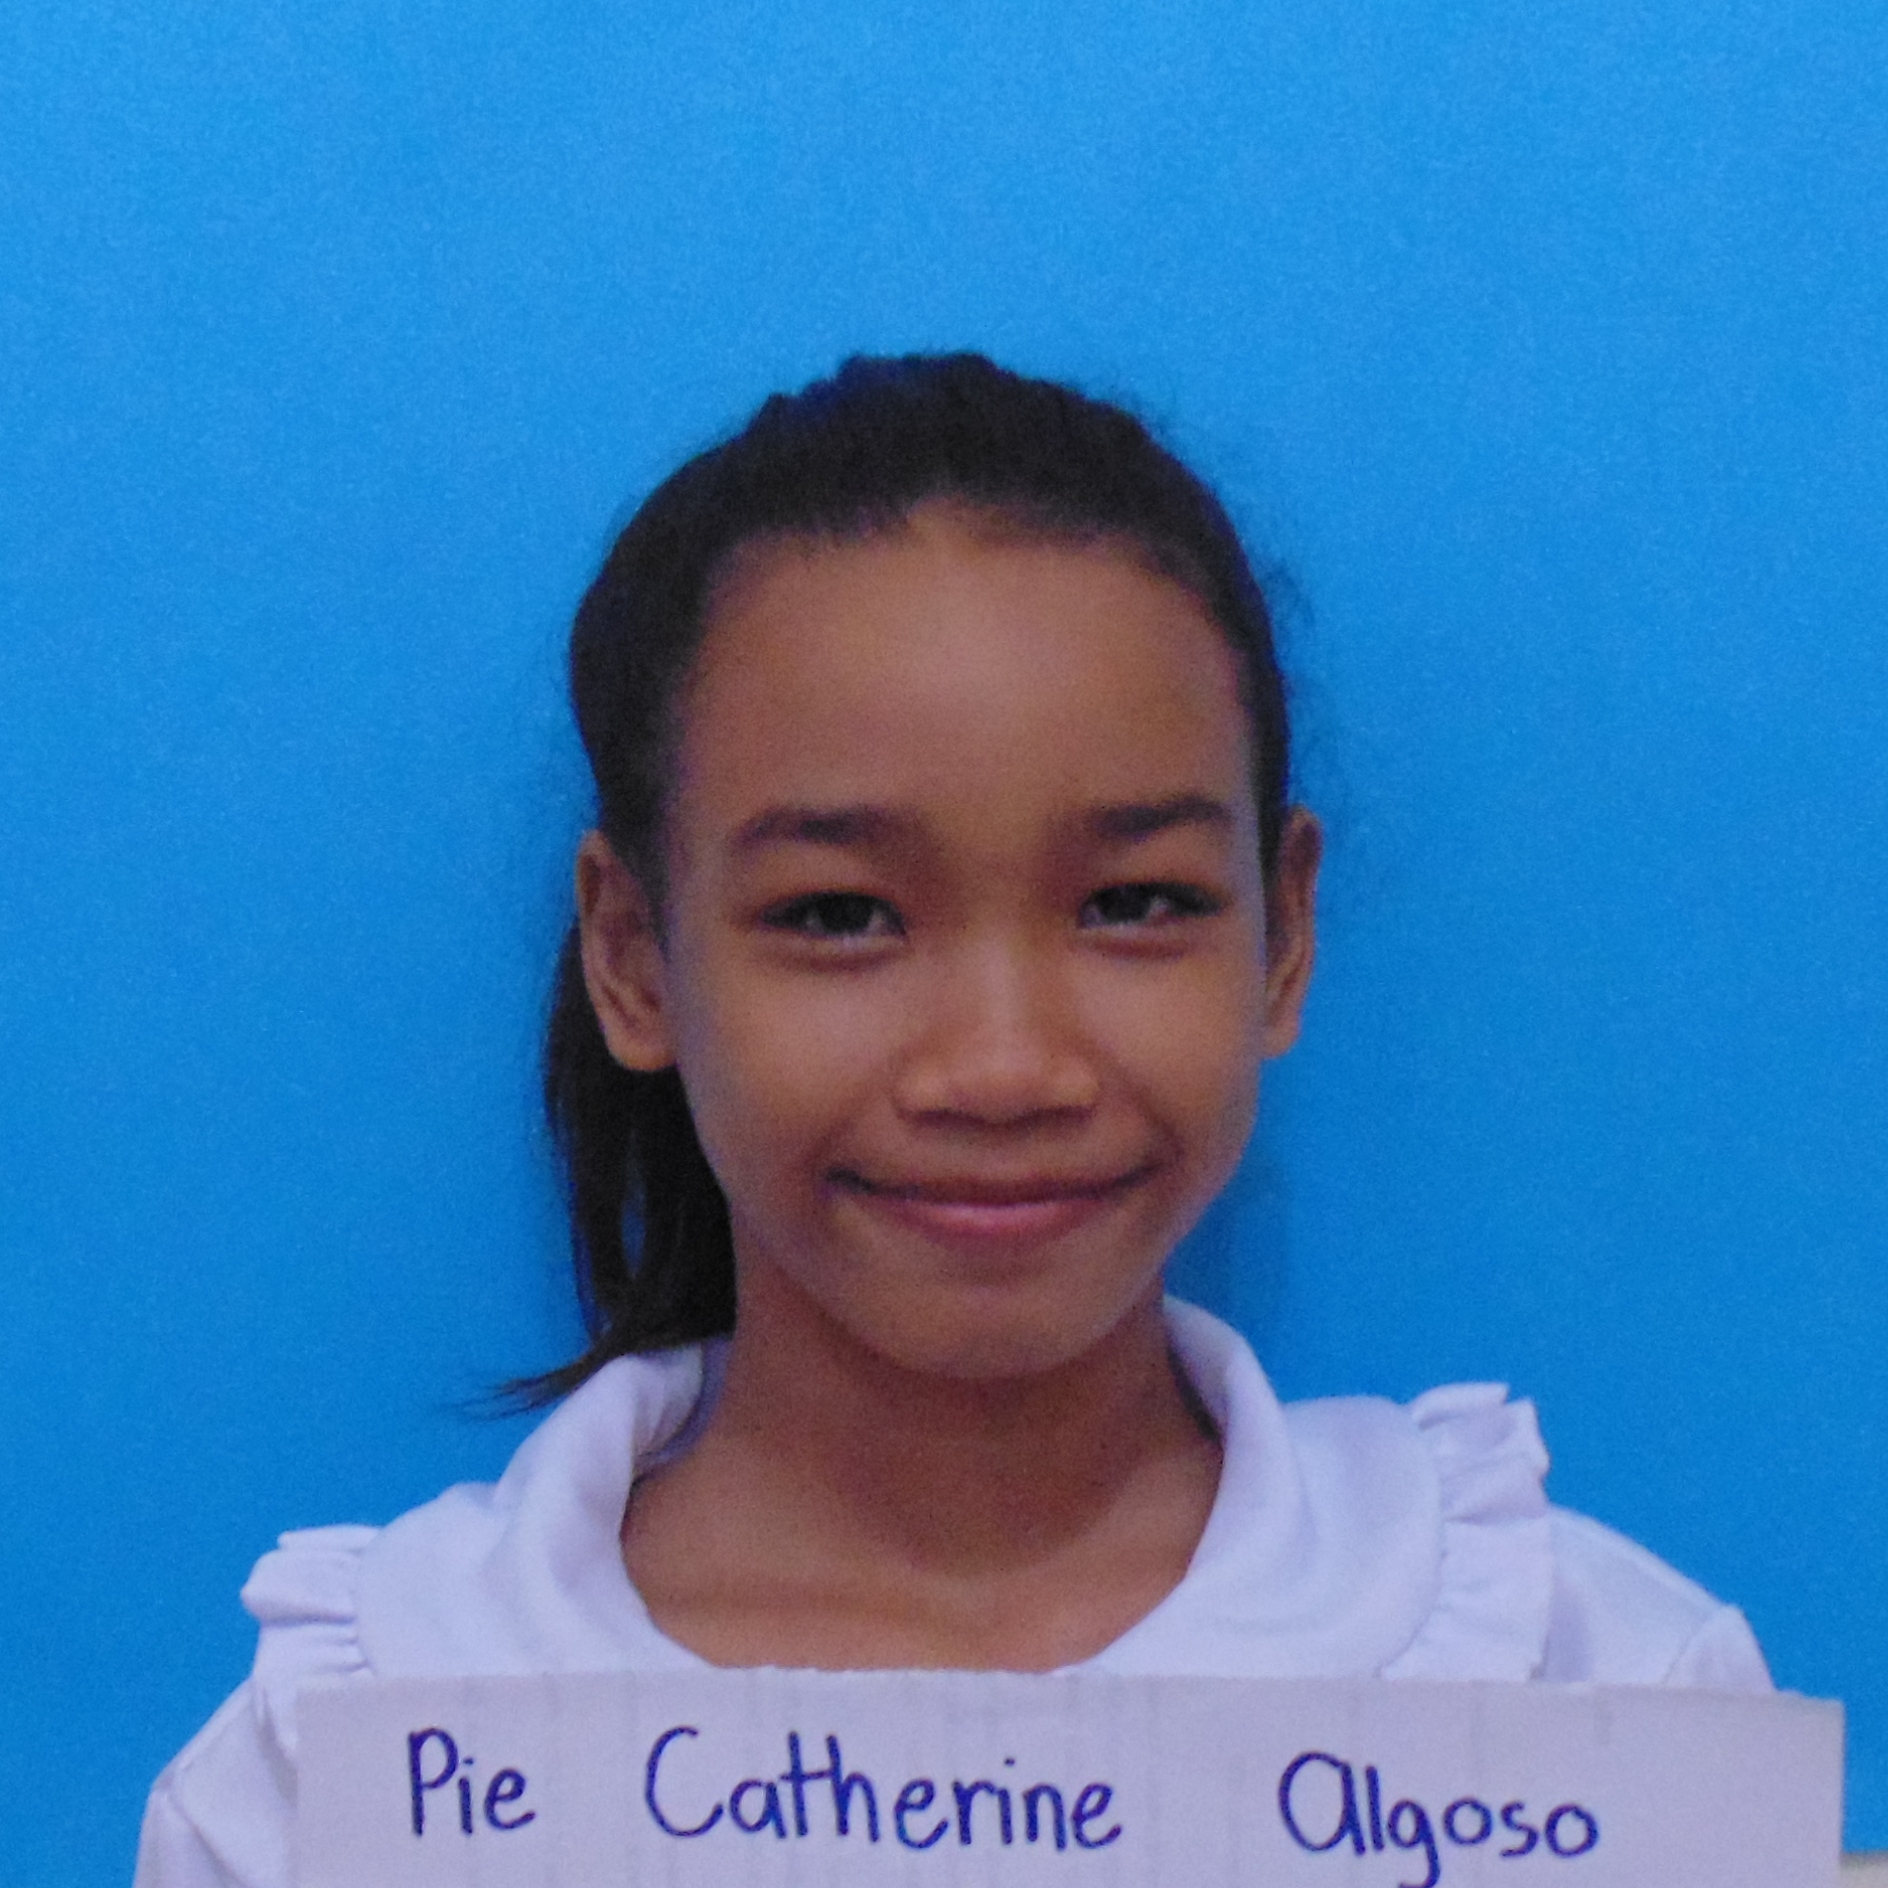 Pie Catherine Algoso